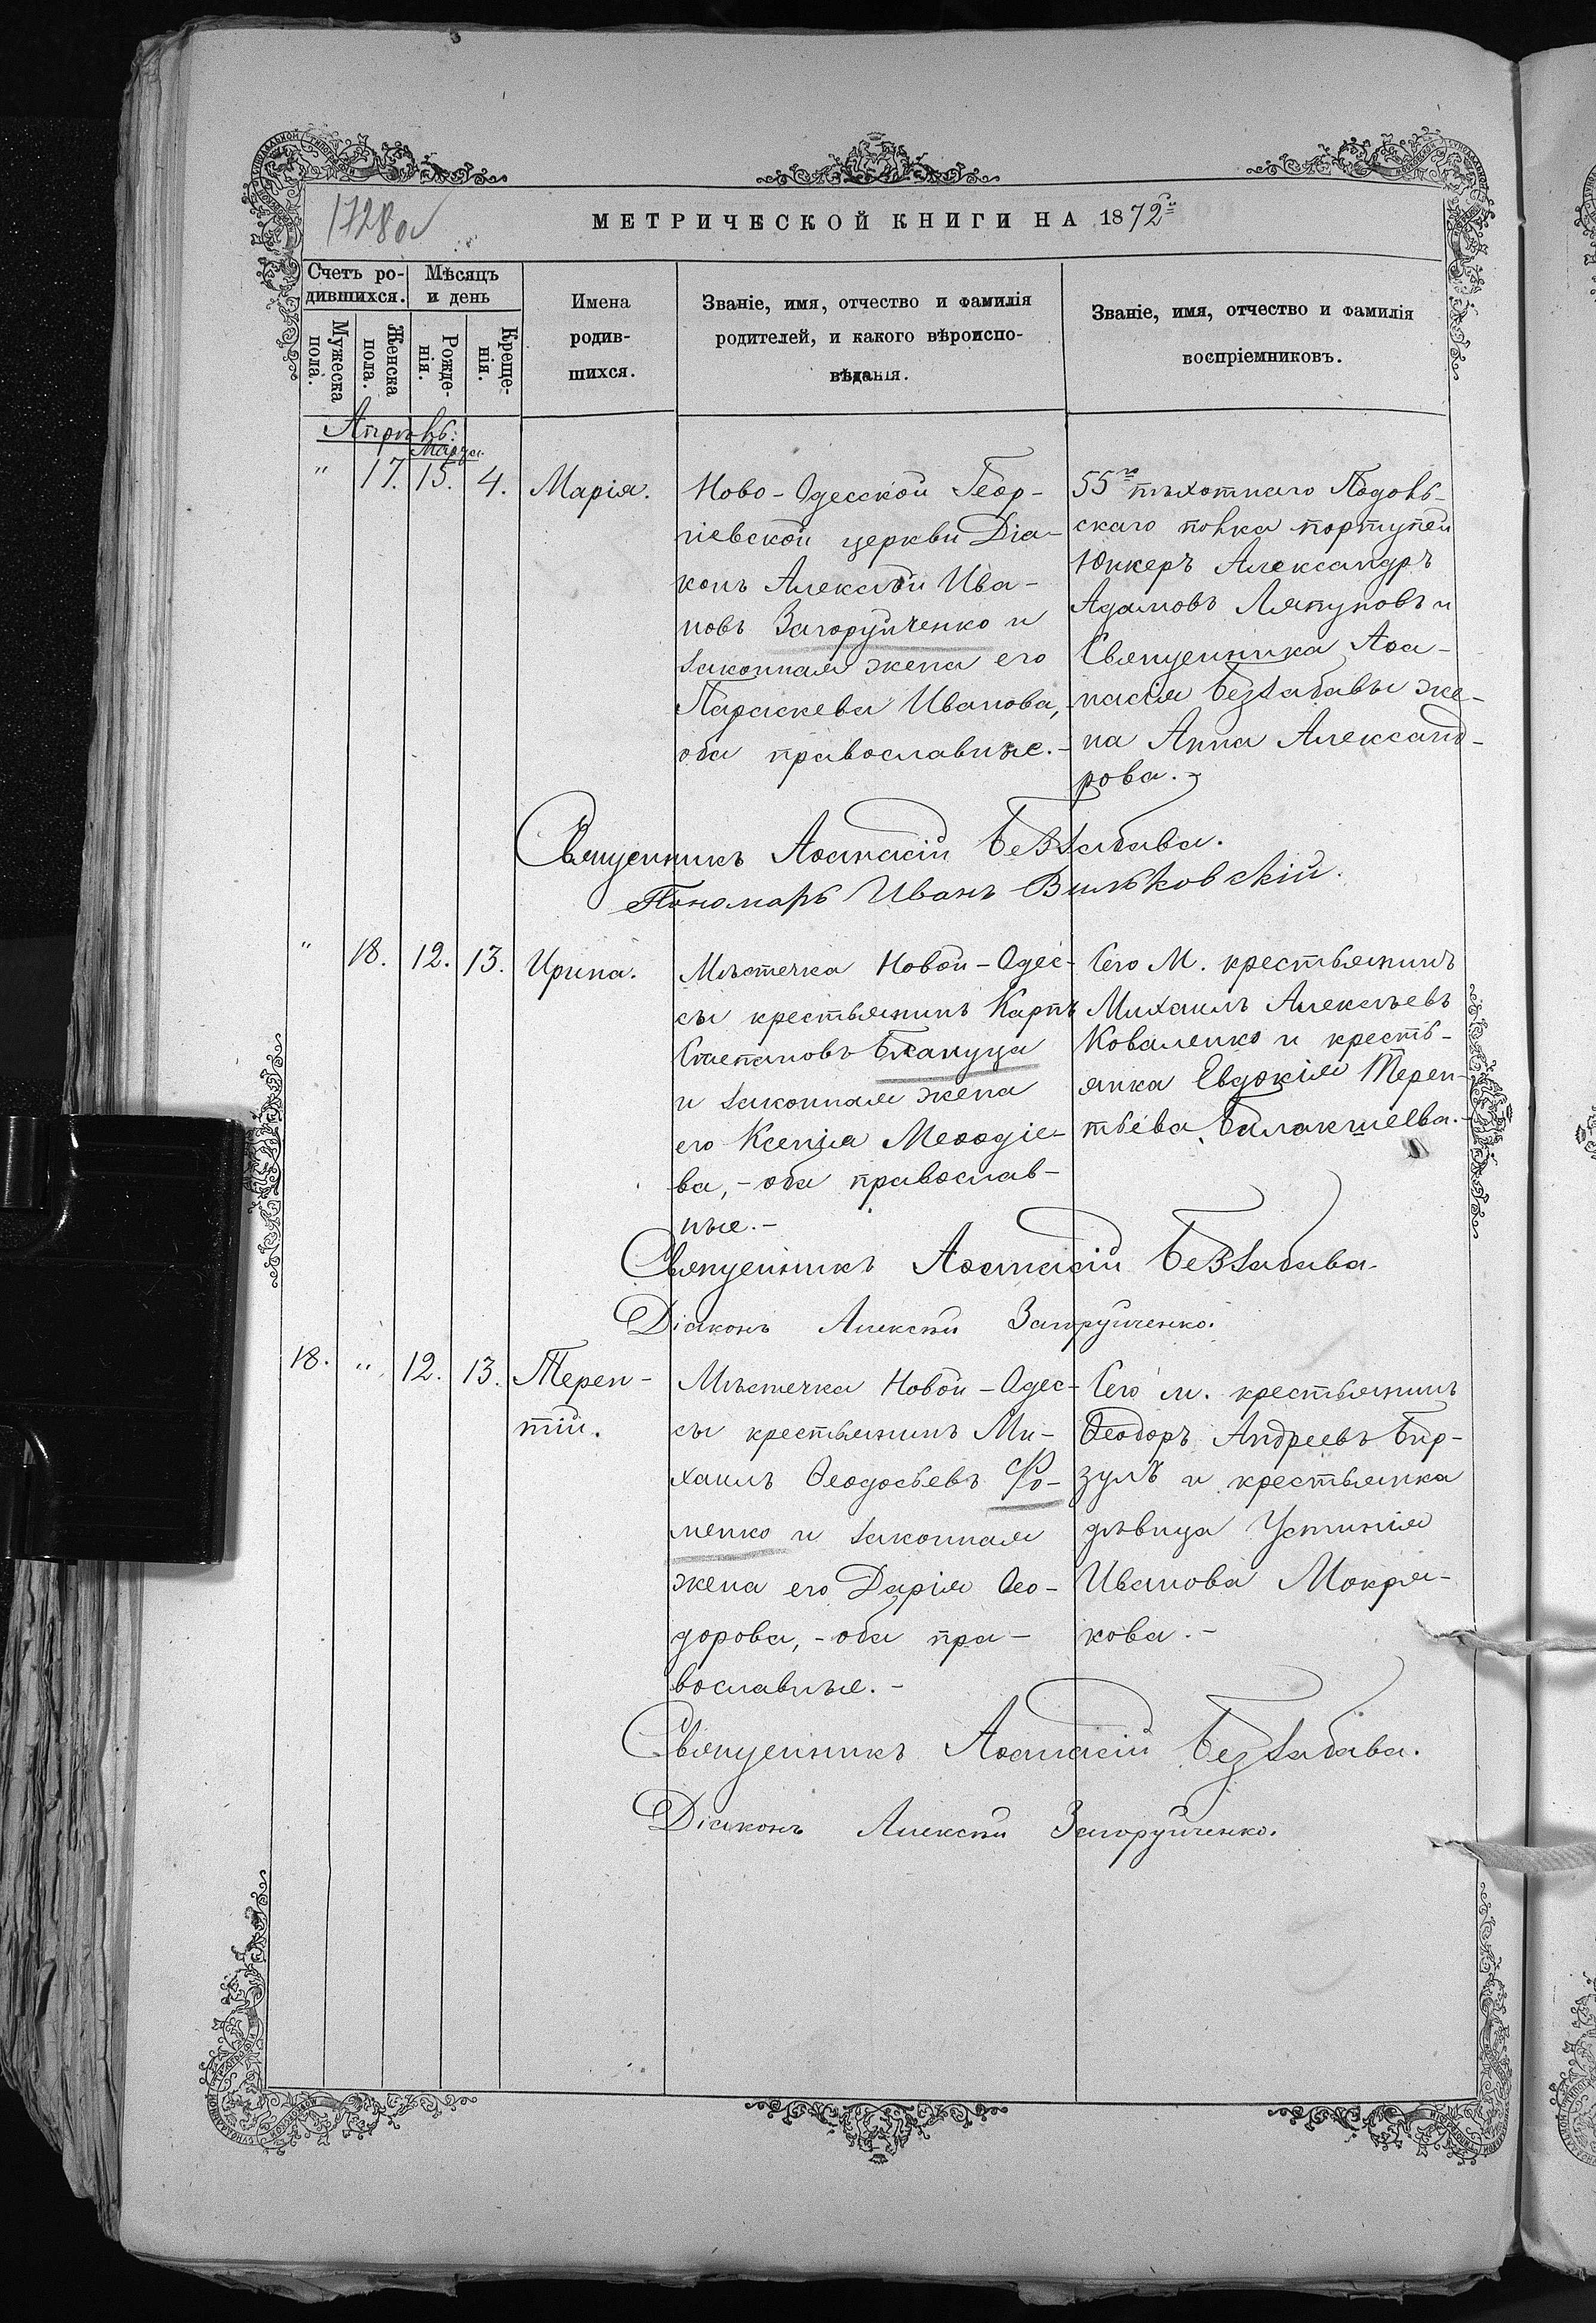 1728об
МЕТРИЧЕСКОЙ КНИГИ НА 1872й
Счетъ ро-
дившихся.
Мѣсяцъ
и день
Мужеска
пола.
Женска
пола.
Рожде-
нія.
Креще-
нія.
Имена
родив-
шихся.
Званіе, имя, отчество и фамилія
родителей, и какого вѣроиспо-
вѣданія.
Званіе, имя, отчество и фамилія
воспріемниковъ.
Апрѣль:
Марта
" 17. 15. 4. Марія.
Ново-Одесской Геор-
гіевской церкви Діа-
конъ Алексѣй Ива-
новъ Загоруйченко и
законная жена его
Параскева Иванова,
оба православные.-
55го пѣхотнаго Подоль-
скаго полка портупей
Юнкеръ Александръ
Адамовъ Ляпуновъ и
Священника Аѳа-
насія Беззабавы же-
на Анна Александ-
рова.-
Священникъ Аѳанасій Беззабава.
Пономарь Иванъ Вильковскій.
" 18. 12. 13. Ирина.
Мѣстечка Новой-Одес-
сы крестьянинъ Карпъ
Степановъ Бкануца
и законная жена
его Ксенія Меѳодіе-
ва,-оба православ-
ные.-
Сего М. крестьянинъ
Михаилъ Алексѣевъ
Коваленко и кресть-
янка Евдокія Терен-
тьева Балакшеева.-
Священникъ Аѳанасій Беззабава.
Діаконъ Алексѣй Загоруйченко.
18. " 12. 13. Терен-
тій.
Мѣстечка Новой-Одес-
сы крестьянинъ Ми-
хаилъ Ѳеодосьевъ Фо-
менко и законная
жена его Дарія Ѳео-
дорова,-оба пра-
вославные.-
Сего м. крестьянинъ
Ѳеодоръ Андреевъ Бир-
зулъ и крестьянка
дѣвица Устинія
Иванова Мокря-
кова.-
Священникъ Аѳанасій Беззабава.
Діаконъ Алексѣй Загоруйченко.